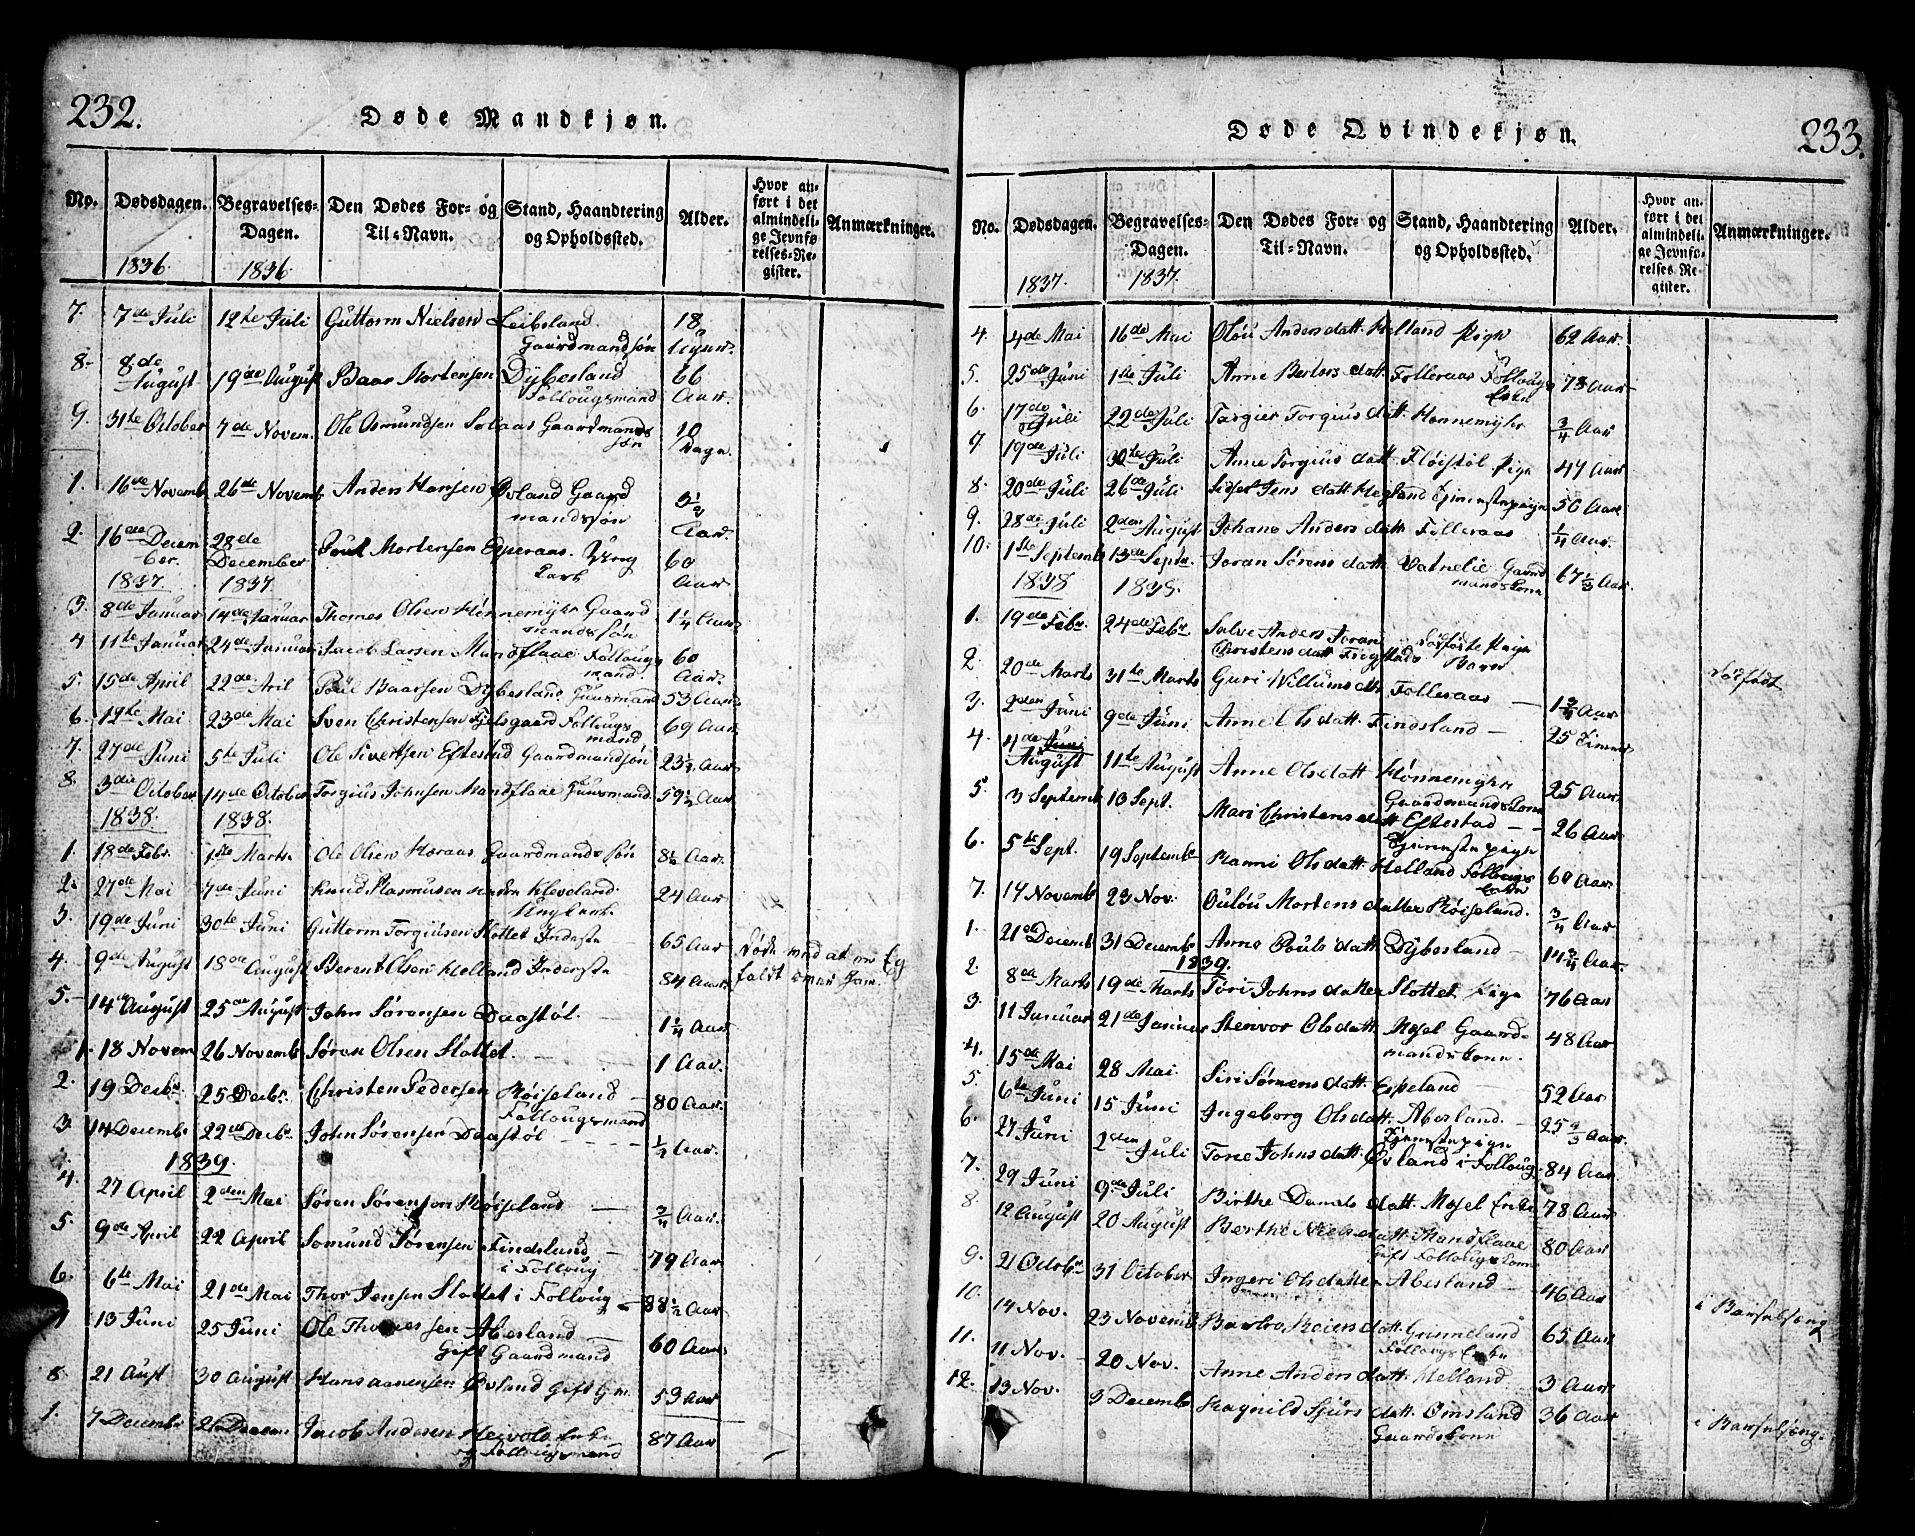 232.
Døde Mandkjøn.
No. Dødsdagen. Begravelses-Dagen. Den Dødes For- og Til-Navn. Stand, Haandtering og Opholdssted. Alder. Hvor anført i det almindelige Jevnførelses-Register. Anmærkninger.
1836. 1836
7. 7de Juli 12te Juli Guttorm Nielsen Leibsland 18
Gaardmandsøn
8. 8de August 19de August Baar Mortensen Dybesland 66
Follougsmand Aar.
9. 31te October 7de Novem. Ole Osmundsen Solaas Gaardmands 10
søn Dage
1. 16de Novemb 26de Novemb Anders Hansen Øvland Gaard
mandssøn Aar.
2. 16de Decem 28de
ber. December Poul Mortensen Esperaas. 60
Aar
1837. 1837.
3. 8de Januar 14de Januar Thomes Olsen Hønnemyhr Gaard 1¼ Aar
mandssøn
4 11te Januar 24de Januar Jacob Larsen Mandflaae Follougs 60
mand. Aar.
5. 15de April 22de Aril Poul Baarsen Dybesland Huusmand 53 Aar
6. 12te Mai 23de Mai Sven Christensen Fjelsgaard Follougs 69 Aar
mand
7. 27de Juni 5te Juli Ole Sivertsen Eftestad Gaardmandsøn 23½ Aar
8. 3die October 14de October Torgius Johnsen Mandflaae Huusmand 59½ Aar
1838. 1838.
1. 18de Febr. 1ste Marts. Ole Olsen Haraas Gaardmands søn 8½ Aar
2. 27de Mai 7de Juni Knud Rasmusen Kleveland 24 Aar
Ungkarl.
3. 19de Juni 30te Juni Guttorm Torgiusen Slottet Inderste 65 Aar
4. 9de August 18de August Berent Olsen Helland Inderste 84 Aar
Døde ved at en Eg
faldt over ham.
5. 14de August 25de August John Sørensen Daastøl. 1¼ Aar
1. 18 Novem 26 Novemb Søren Olsen Slottet 1 Aar.
2. 19 Decbr. 25 Decbr. Christen Pedersen Røiseland 80 Aar
Follougsmand
3. 14 Decembr 22de Decbr. John Sørensen Daastøl ½ Aar
1839.
4. 27 April 2den Mai Søren Sørensen Røiseland ¾ Aar
5. 9de April 22 April Somund Sørensen Findsland 79 Aar
i Folloug
6. 6te Mai 21de Mai Thor Jensen Slottet i Folloug 88½ Aar
7 13 Juni 25 Juni Ole Thomes sen Abesland 60 Aar
Gift Gaardmand
8. 21 Aust 30 August Hans Aanensen Øvland Gift Gm. 53 Aar
1. 7 Decembr Jacob Andersen Heivold Enke 87 Aar
og Follougsmand
233.
Døde Qvindekjøn.
No. Dødsdagen. Begravelses-Dagen. Den Dødes For- og Til-Navn. Stand, Haandtering og Opholdssted. Alder. Hvor anført i det almindelige Jevnførelses Register. Anmærkninger.
1837. 1837.
4. 4de Mai 16de Mai Olou Anders datt. Helland Pige 62 Aar
5. 25de Juni 1ste Juli Anne Berters datt. Folleraas Follougs 73 Aar
Enke
6. 17de Juli 22de Juli Targier Torgius datt. Hønnemyhr ¾ Aar
7 19de Juli 30te Juli Anne Torgius datt. Fløistøl Pige 47 Aar
8. 20de Juli 26de Juli Sidsel Jens datt. Hegland Tjenestepige 50 Aar
9. 28de Juli 2den August Johane Anders datt. Folleraas ¼ Aar.
10. 1ste Septemb 13de Septr. Joran Sørens datt. Vatnelie Gaard 67⅓ Aar
mands Kone
1838 1838.
1. 19de Febr. 24de Febr. Salve Anders Joran Dødfødte Pige
Christens datt. Frigstads Barn Dødfødt
2. 20de Marts 31te Marts Guri Willums datt. Folleraas 1¾ Aar
3. 2den Juni 9de Juni Anne Olsdatt. Findsland 25 Timer
4. 4de Juni
August 11te August Anne Olsdatt. Hønnemyhr 25 Aar
Gaardmands Kone
5. 3 Septemb 13 Sept. Mari Christens datt. Eftestad 26 Aar
Tjenestepige
6. 5te Sept. 19 Septembr Olsdatt. Helland Follougs 60 Aar
Enke
7. 14 Novemb 23 Nov. Oulou Mortens datter Røiseland. ¾ Aar
1. 21de Decemb 31 Decembr Anne Pouls datt. Dybesland 14¾ Aar
1839.
2. 8de Marts 19de Marts Tori Johns datter Slottet Pige 76 Aar
3. 11 Januar 21de Januar Stenvor Olsdatt. Mosel Gaard- 48 Aar
mandskone.
4. 15de Mai 28 Mai. Siri Sørens datt. Espeland 52 Aar
5. 6te Juni 15 Juni Ingeborg Olsdatt. Abesland. 25⅔ Aar
Tjenestepige
6. 27 Juni 2den Juli Tone Johns datt. Øvland i Folloug. 84 Aar
7. 29 Juni 9de Juli Birthe Daniels datt. Mosel Enke 78 Aar
8. 12 August 20 August Berthe Niels datt. Mandflaae 80 Aar
Gift Follougs Kone
9. 21 Octobr. 31 October Ingeri Olsdatter Abesland 46 Aar
i Barselseng
10. 14 Nov. 23 Novemb Barbro Reiers datt. Grindeland 65 Aar
Follougs Enke
11. 11 Nov. 20 Nov. Anne Anders datt. Helland 3 Aar
12. 13 Nov. 3 Decemb Ragnild Sjurs datt. Omsland 36 Aar
Gaardskone i Barselseng.